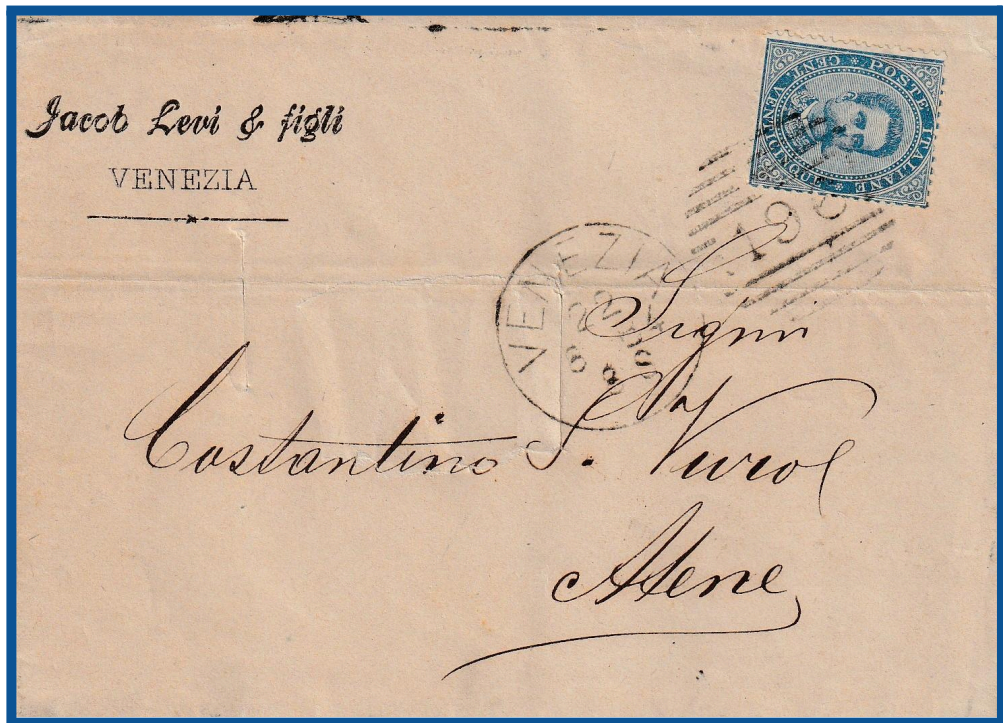 Jacob Levi & figli
VENEZIA
POSTE ITALIANE * CENT. VENTICINQUE *
196
VENEZIA
Signor
Costantino S.
Atene